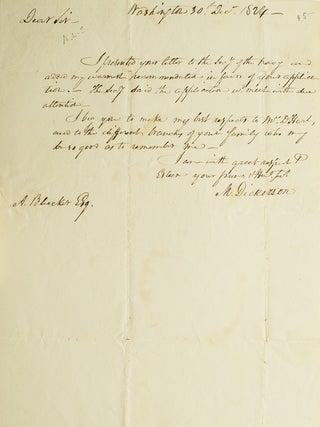 Washington 30. Decr. 1824 -
Dear Sir
I presented your letter to the Secy of the Navy and
added my warmest recommendation in favor of your applica
tion. - The Secy said the application wd. meet with due
attention -
I beg you to make my best respects to Mrs.
and to the different branches of your family who may
be so good as to remember me -
I am with great respect &
Esteem your friend & Hbl. St.
M. Dickerson
A. Bleecker Esq.